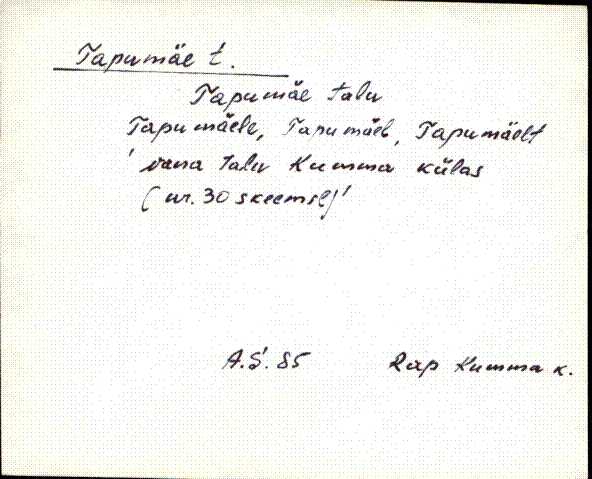 Tapumäe t.
Tapumäe talu
Tapumäele, Tapumäel, Tapumäelt
'vana talu Kumma külas
(nr. 30 skeemil)'
A.Š. 85 Rap Kumma k.